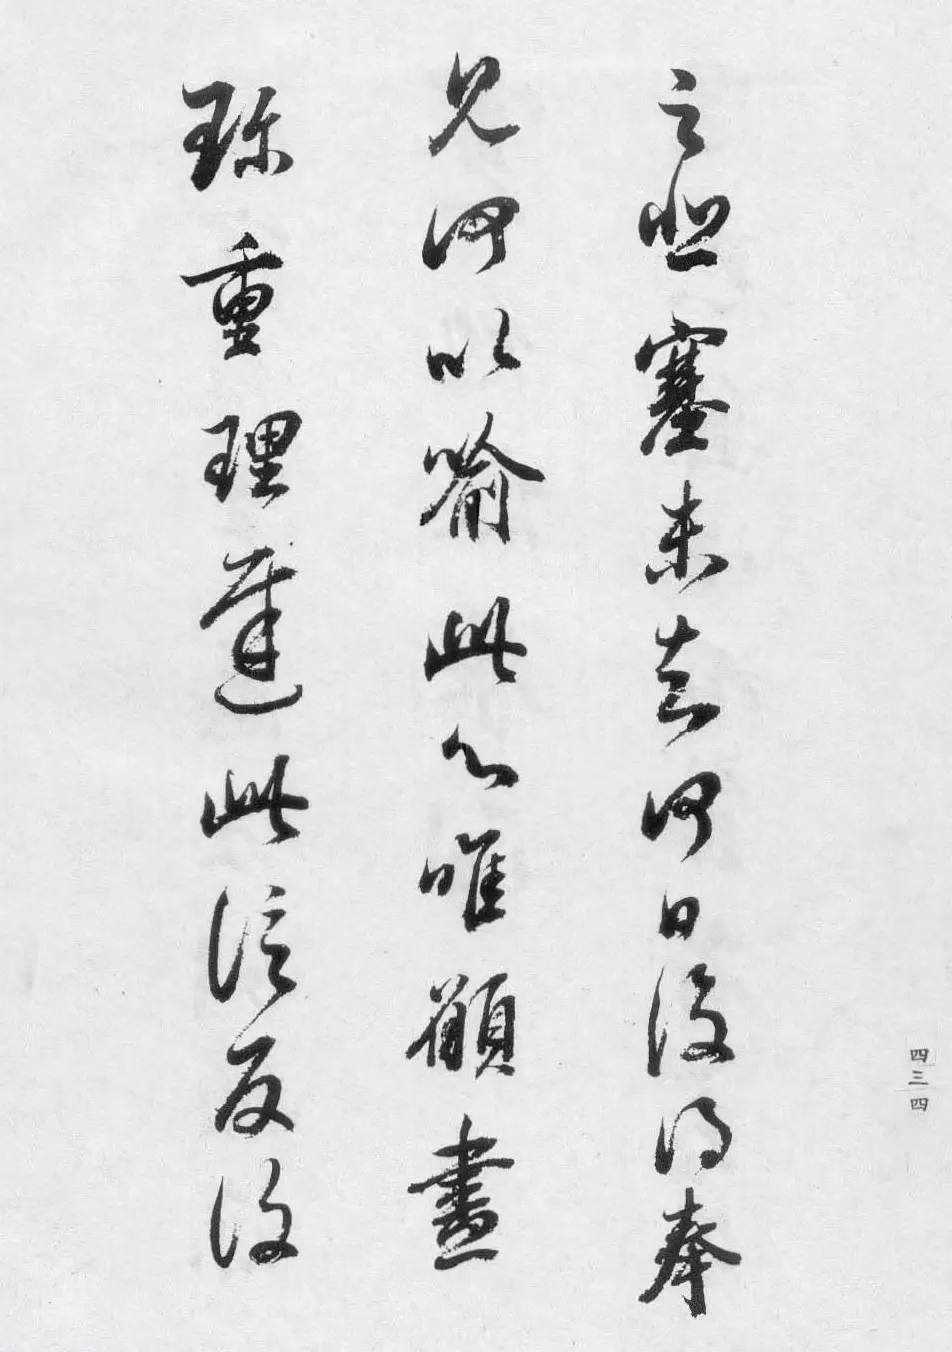 之悲塞未知何日復得奉
見何以喻此心唯願盡
珍重理遲此信反復
四三四